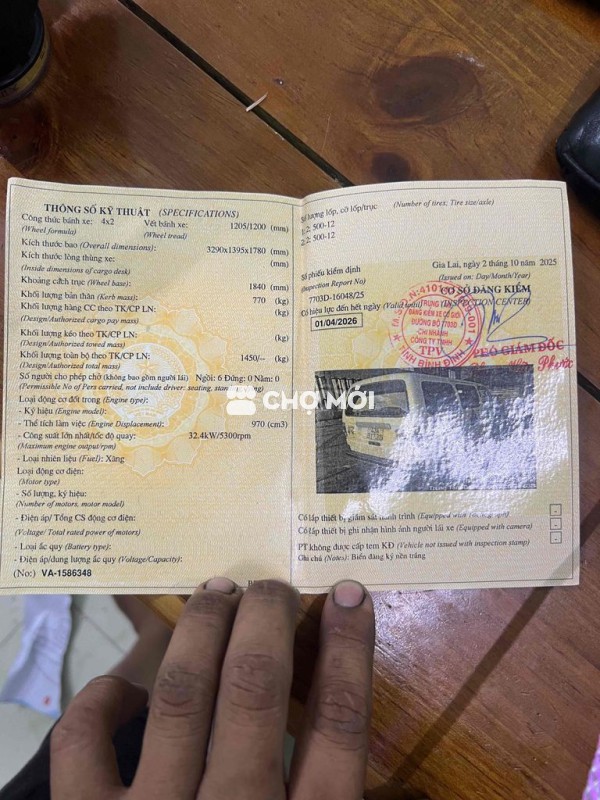 THÔNG SỐ KỸ THUẬT (SPECIFICATIONS)
Công thức bánh xe: 4x2 Vết bánh xe: 1205/1200 (mm)
(Wheel formula) (Wheel tread)
Kích thước bao (Overall dimensions): 3290x1395x1780 (mm)
Kích thước lòng thùng xe: (mm)
(Inside dimensions of cargo desk)
Khoảng cách trục (Wheel base): 1840 (mm)
Khối lượng bản thân (Kerb mass): 770 (kg)
Khối lượng hàng CC theo TK/CP LN:
(Design/Authorized cargo pay mass) (kg)
Khối lượng kéo theo TK/CP LN: (kg)
(Design/Authorized towed mass)
Khối lượng toàn bộ theo TK/CP LN: 1450/-- (kg)
(Design/Authorized total mass)
Số người cho phép chở (không bao gồm người lái) Ngồi: 6 Đứng: 0 Nằm: 0
(Permissible No of Pers carried, not include driver: seating,
Loại động cơ đốt trong (Engine type):
- Ký hiệu (Engine model):
- Thể tích làm việc (Engine Displacement): 970 (cm3)
- Công suất lớn nhất/tốc độ quay: 32.4kW/5300rpm
(Maximum engine output/rpm)
- Loại nhiên liệu (Fuel): Xăng
Loại động cơ điện:
(Motor type)
- Số lượng, ký hiệu:
(Number of motors, motor model)
- Điện áp/ Tổng CS động cơ điện:
(Voltage/ Total rated power of motors)
- Loại ắc quy (Battery type):
- Điện áp/dung lượng ắc quy (Voltage/Capacity):
(No:) VA-1586348
Số lượng lốp, cỡ lốp/trục (Number of tires; Tire size/axle)
1: 2; 500-12
2: 2; 500-12
Số phiếu kiểm định
(Inspection Report No)
7703D-16048/25
Gia Lai, ngày 2 tháng 10 năm 2025
(Issued on: Day/Month/Year)
CƠ SỞ ĐĂNG KIỂM
(INSPECTION CENTER)
Có hiệu lực đến hết ngày (Valid until)
01/04/2026
TRUNG TÂM
ĐĂNG KIỂM XE CƠ GIỚI
ĐƯỜNG BỘ 7703D
CHI NHÁNH
CÔNG TY TNHH
TPV
TỈNH BÌNH ĐỊNH
PHÓ GIÁM ĐỐC
Phước
CHỢ MỚI
Có lắp thiết bị giám sát hành trình (Equipped with
Có lắp thiết bị ghi nhận hình ảnh người lái xe (Equipped with camera)
PT không được cấp tem KĐ (Vehicle not issued with inspection stamp)
Ghi chú (Notes): Biển đăng ký nền trắng